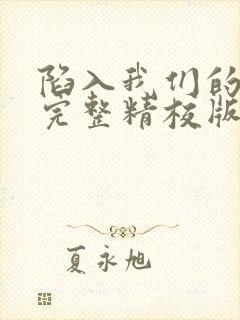 陷入我们的
完整精校版
夏永旭